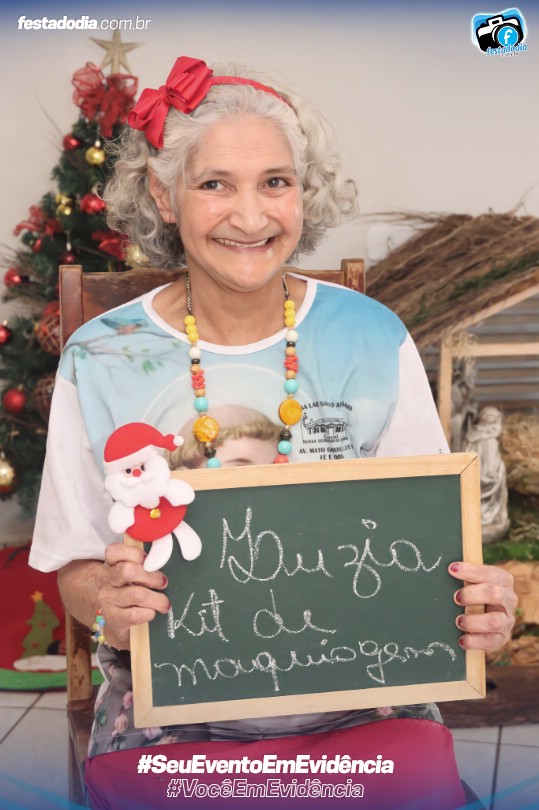 festadodia.com.br
f
festadodia
Luzia
Kit di
maquiagem
AV. MATO GROSSO
FÉ E
#SeuEventoEmEvidência
#VocêEmEvidência